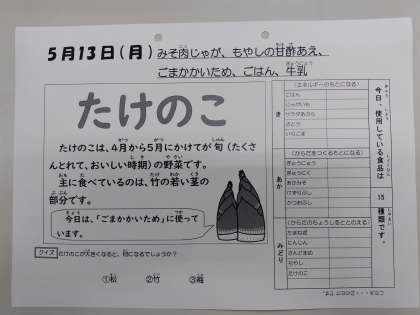 5月13日(月) みそ肉じゃが、もやしの甘酢あえ、
ごまかかいため、ごはん、牛乳
たけのこ
たけのこは、4月から5月にかけてが旬(たくさ
んとれて、おいしい時期)の野菜です。
主に食べているのは、竹の若い茎の
部分です。
今日は、「ごまかかいため」に使って
います。
クイズ たけのこが大きくなると、何になるでしょうか?
①松 ②竹 ③梅
今日、使用している食品は 15 種類です。
き
(エネルギーのもとになる)
ごはん
じゃがいも
サラダあぶら
さとう
いりごま
あか
(からだをつくるもとになる)
ぎゅうにゅう
ぎゅうにく
あかみそ
けずりぶし
かつおぶし
みどり
(からだのちょうしをととのえる)
たまねぎ
にんじん
さんどまめ
もやし
たけのこ